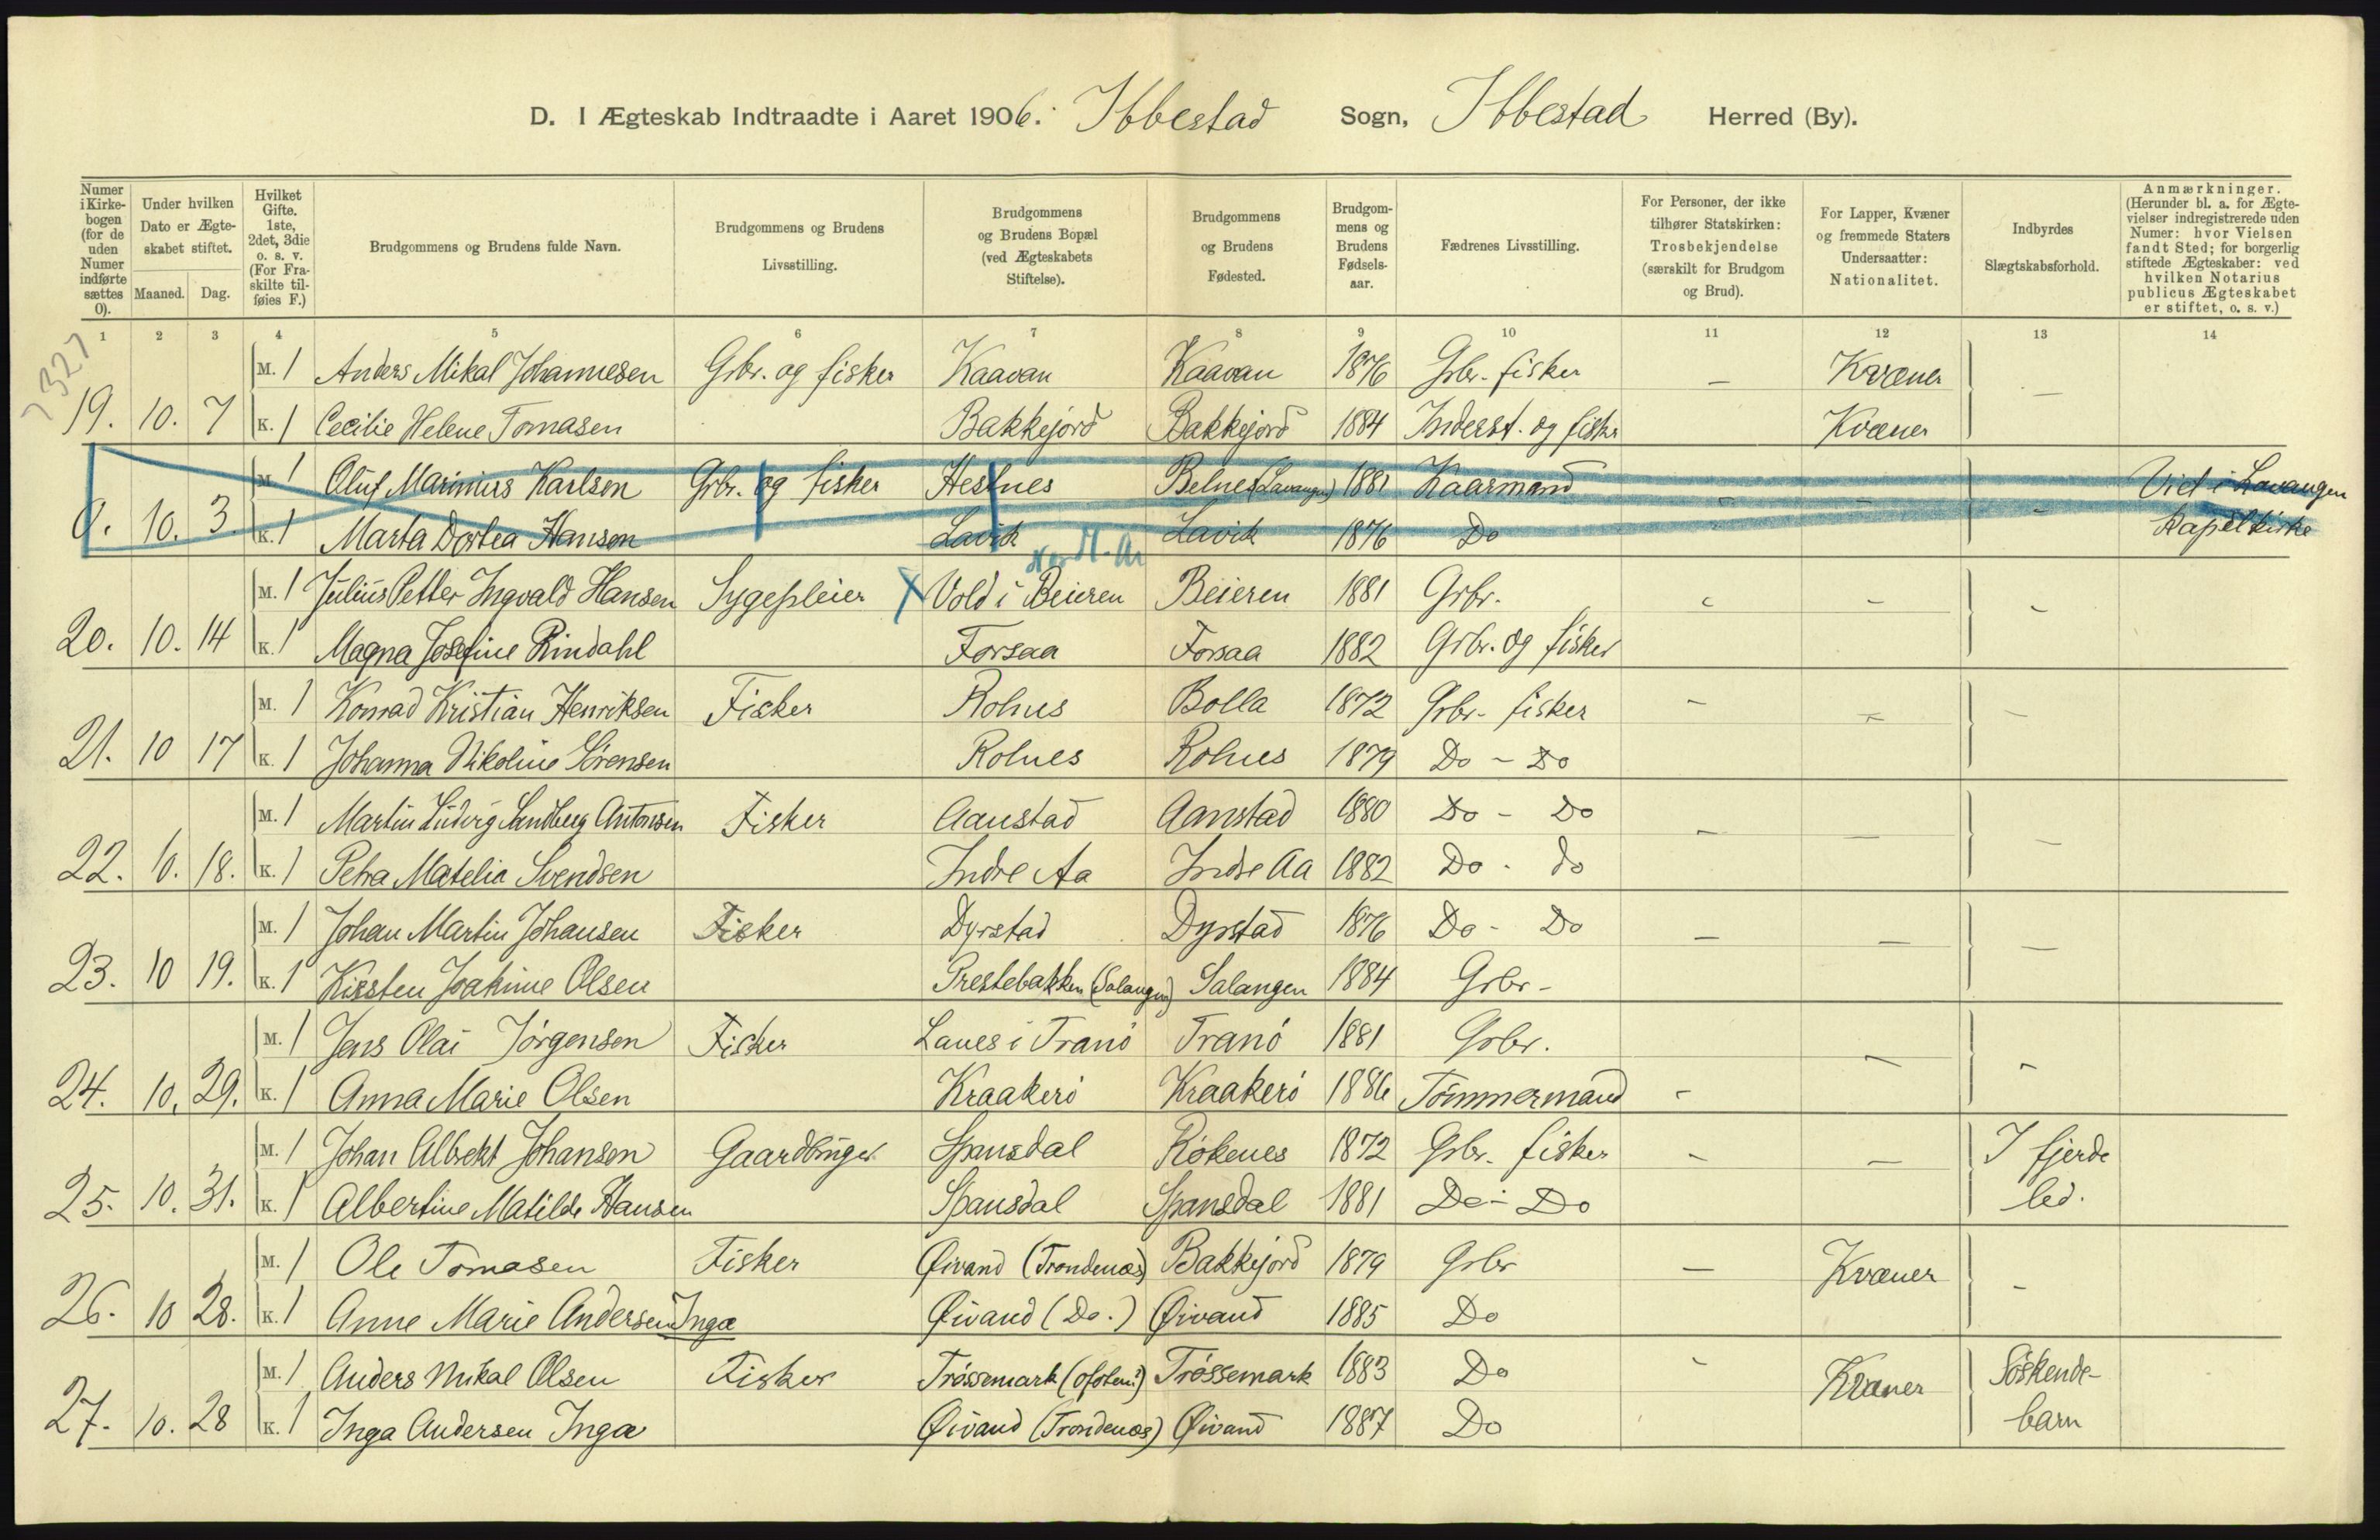 D. I Ægteskab Indtraadte i Aaret 1906. Ibbestad Sogn, Ibbestad Herred (By).
Numer i Kirkebogen (for de uden Numer indførte sættes 0). Under hvilken Dato er Ægteskabet stiftet. Maaned. Dag. Hvilket Gifte. 1ste, 2det, 3die o. s. v. (For Fraskilte tilføies F.) Brudgommens og Brudens fulde Navn. Brudgommens og Brudens Livsstilling. Brudgommens og Brudens Bopæl (ved Ægteskabets Stiftelse). Brudgommens og Brudens Fødested. Brudgommens og Brudens Fødselsaar. Fædrenes Livsstilling. For Personer, der ikke tilhører Statskirken: Trosbekjendelse (særskilt for Brudgom og Brud). For Lapper, Kvæner og fremmede Staters Undersaatter: Nationalitet. Indbyrdes Slægtskabsforhold. Anmærkninger. (Herunder bl. a. for Ægtevielser indregistrerede uden Numer: hvor Vielsen fandt Sted; for borgerlig stiftede Ægteskaber: ved hvilken Notarius publicus Ægteskabet er stiftet, o. s. v.)
1 2 3 4 5 6 7 8 9 10 11 12 13 14
7327
M. 1 Anders Mikal Johannesen Grbr. og fisker Kaavan Kaavan 1876 Grbr. fisker – Kvæner –
19. 10. 7 K. 1 Cecilie Helene Tomasen Bakkejord Bakkejord 1884 Inderst. og fisker Kvæner
M. 1 Oluf Marinius Karlsen Grbr. og fisker Hesnes Belnes (Lavangen) 1881 Kaarmand - - - Viet i Lavangen
0. 10. 3. K. 1 Marta Dortea Hansen Lavik Lavik 1876 Do Kapelkirke
Nordl. A
M. 1 Julius Petter Ingvald Hansen Sygepleier X Vold i Beieren Beieren 1881 Grbr. - - -
20. 10. 14 K. 1 Magna Josefine Rindahl Forsaa Forsaa 1882 Grbr. og fisker
M. 1 Konrad Kristian Henriksen Fisker Rolnes Bolla 1872 Grbr. fisker - - -
21. 10 17 K. 1 Johanna Nikoline Sørensen Rolnes Rolnes 1879 Do - Do
M. 1 Martin Ludvig Sandberg Antonsen Fisker Aanstad Aanstad 1880 Do - Do - - -
22. 10. 18. K. 1 Petra Matelia Svendsen Indre Aa Indre Aa 1882 Do - do
M. 1 Johan Martin Johansen Fisker Dyrstad Dyrstad 1876 Do - Do - - -
23. 10 19. K. 1 Kirsten Joakime Olsen Prestebakken (Salangen) Salangen 1884 Grbr -
M. 1 Jens Olai Jørgensen Fisker Lanes i Tranö Tranö 1881 Grbr. - -
24. 10. 29. K. 1 Anna Marie Olsen Kraakerö Kraakerö 1886 Tömmermand -
M. 1 Johan Albrekt Johansen Gaardbruger Spansdal Rökenes 1872 Grbr. fisker - - I fjerde
25. 10. 31. K. 1 Albertine Matilde Hansen Spansdal Spansdal 1881 Do - Do led.
M. 1 Ole Tomasen Fisker Øivand (Trondenæs) Bakkejord 1879 Grbr - Kvæner -
26. 10 28. K. 1 Anne Marie Andersen Inga Øivand (Do.) Øivand 1885 Do
M. 1 Anders Mikal Olsen Fisker Trössemark (Ofoten) Trössemark 1883 Do - Kvæner Söskende-
27. 10. 28 K. 1 Inga Andersen Inga Øivand (Trondenæs) Øivand 1887 Do barn